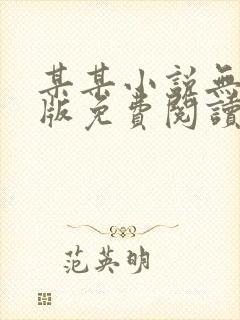 某某小説無
版免費閱讀
范英明